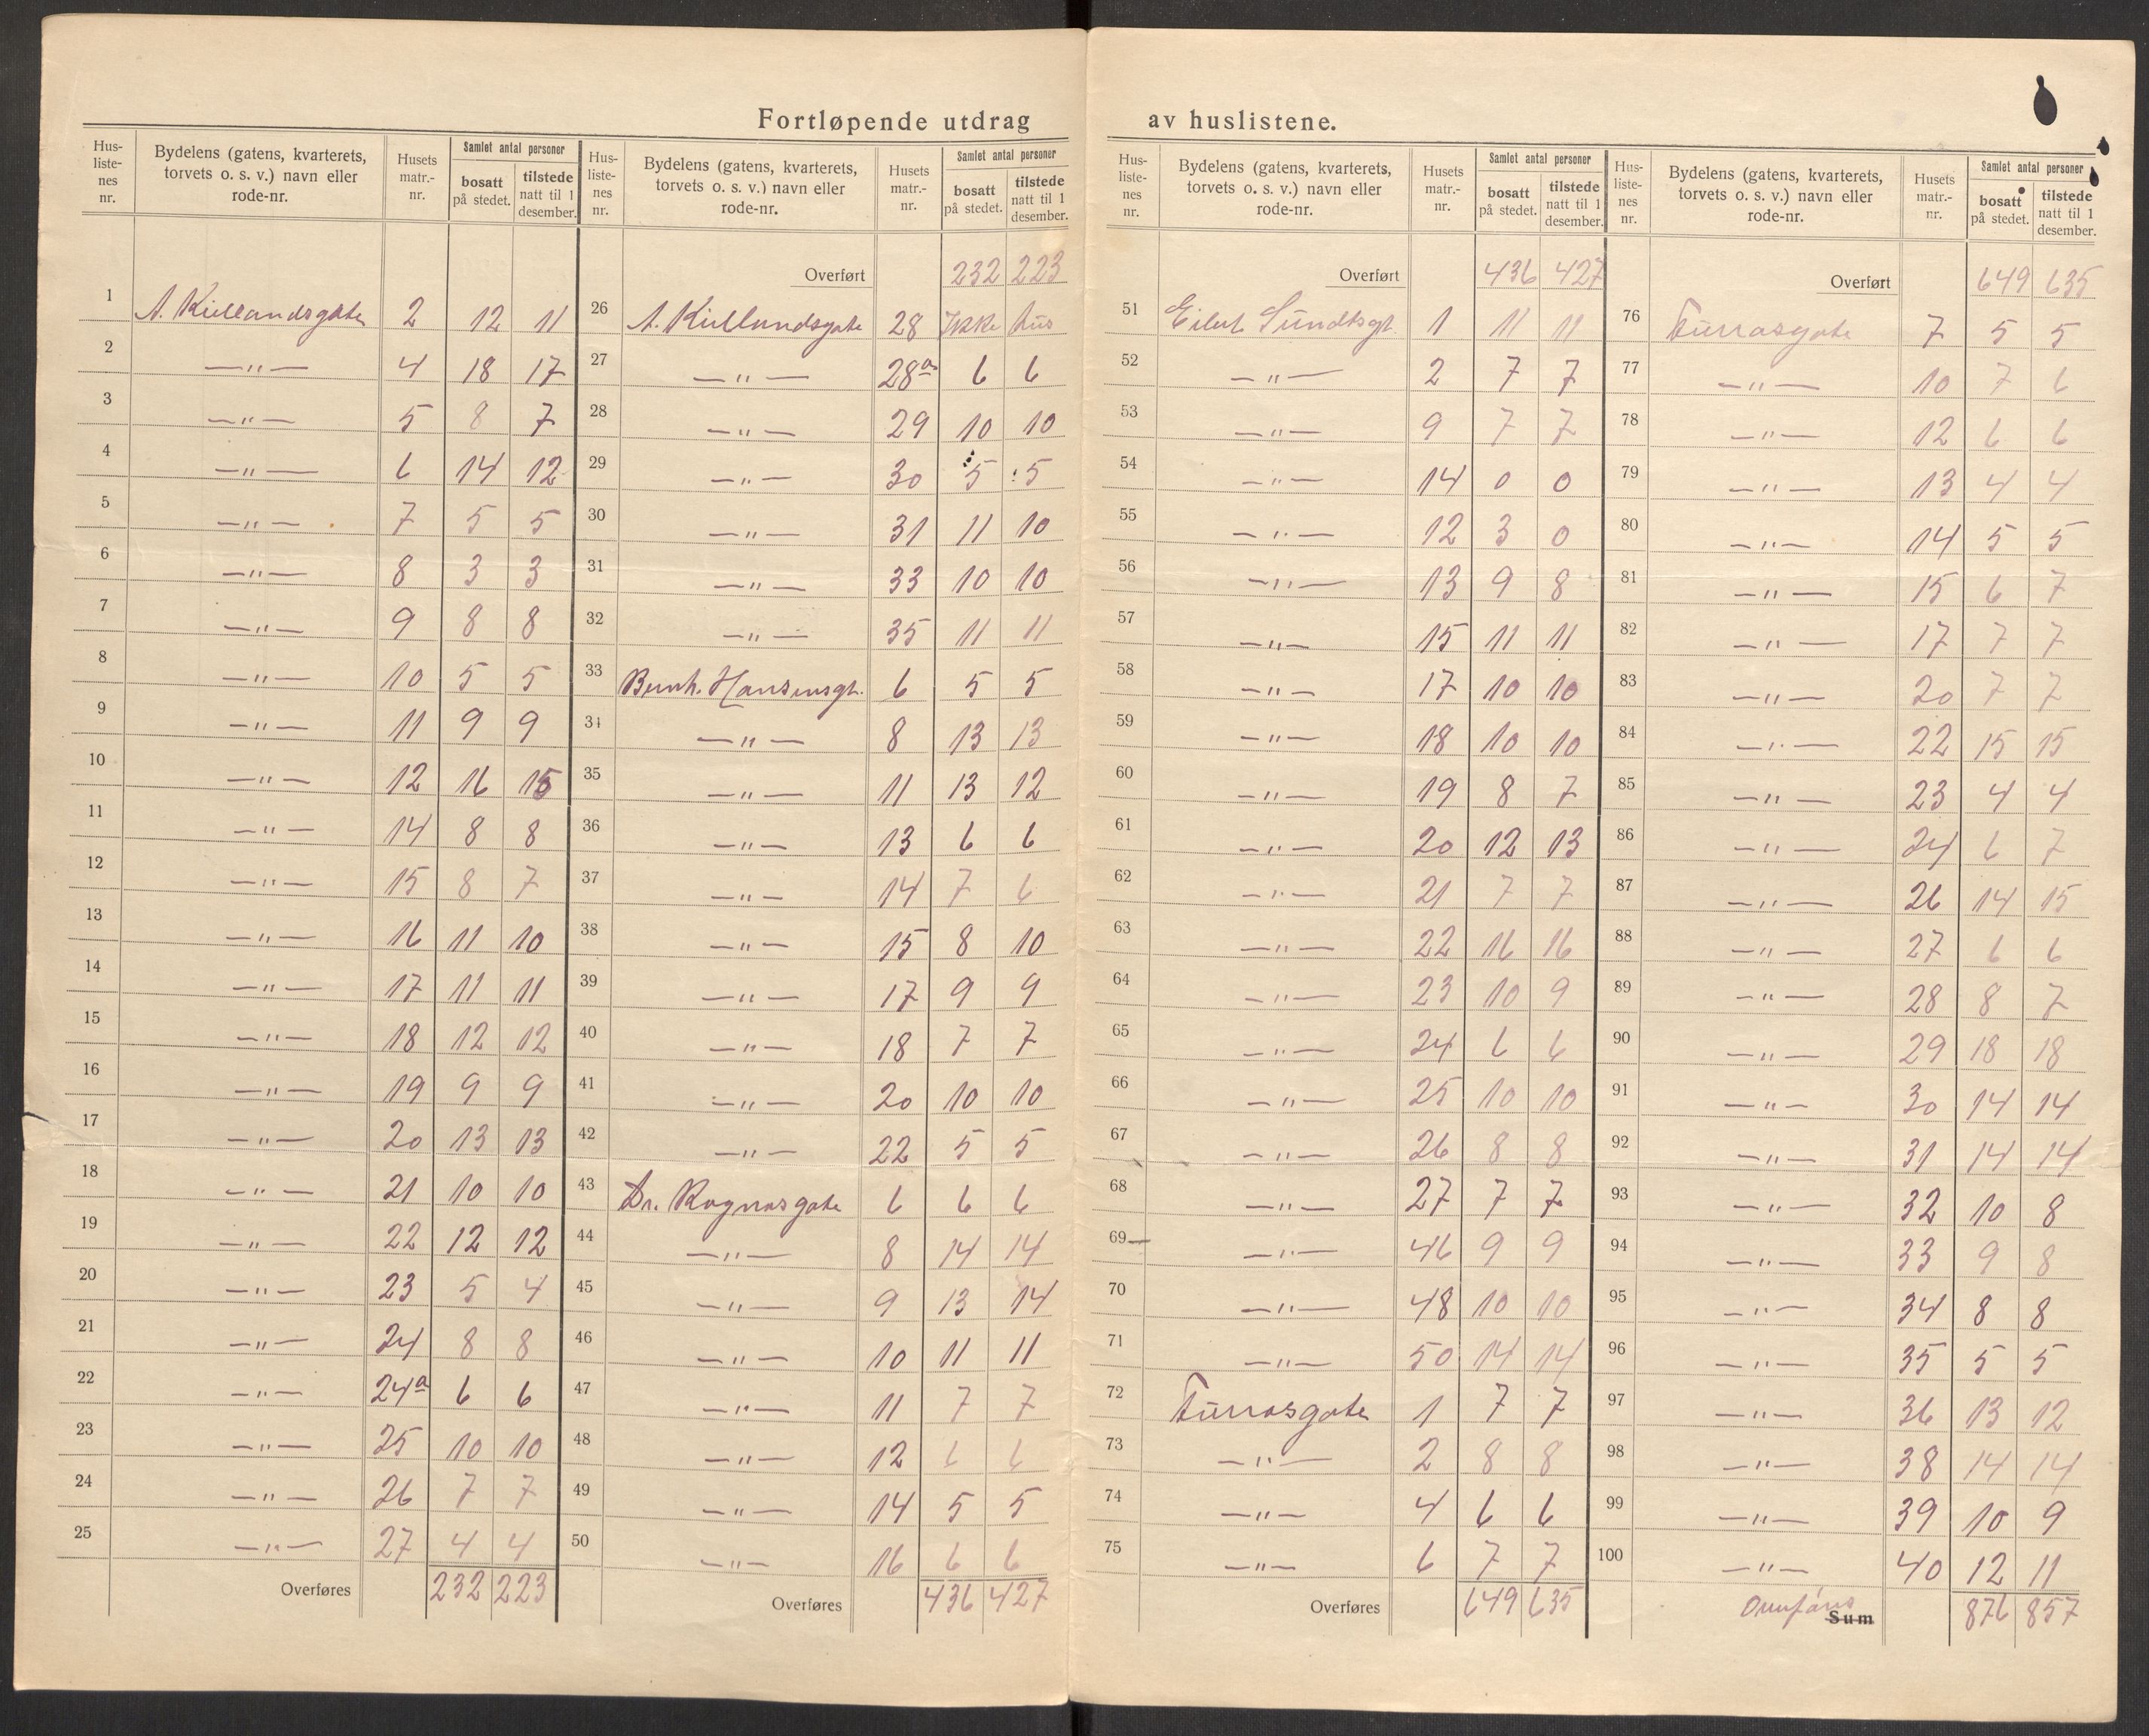 Fortløpende utdrag av huslistene.
Hus-liste-nes nr. | Bydelens (gatens, kvarterets, torvets o. s. v.) navn eller rode-nr. | Husets matr.-nr. | Samlet antal personer: bosatt på stedet. | tilstede natt til 1 desember.
1 A. Kiellandsgate 2 12 11
2 —"— 4 18 17
3 —"— 5 8 7
4 —"— 6 14 12
5 —"— 7 5 5
6 —"— 8 3 3
7 —"— 9 8 8
8 —"— 10 5 5
9 —"— 11 9 9
10 —"— 12 16 15
11 —"— 14 8 8
12 —"— 15 8 7
13 —"— 16 11 10
14 —"— 17 11 11
15 —"— 18 12 12
16 —"— 19 9 9
17 —"— 20 13 13
18 —"— 21 10 10
19 —"— 22 12 12
20 —"— 23 5 4
21 —"— 24 8 8
22 —"— 24a 6 6
23 —"— 25 10 10
24 —"— 26 7 7
25 —"— 27 4 4
Overføres 232 223
Hus-liste-nes nr. | Bydelens (gatens, kvarterets, torvets o. s. v.) navn eller rode-nr. | Husets matr.-nr. | Samlet antal personer: bosatt på stedet. | tilstede natt til 1 desember.
Overført 232 223
26 A. Kiellandsgate 28 Ikke hus
27 —"— 28a 6 6
28 —"— 29 10 10
29 —"— 30 5 5
30 —"— 31 11 10
31 —"— 33 10 10
32 —"— 35 11 11
33 Bernh. Hansensgt. 6 5 5
34 —"— 8 13 13
35 —"— 11 13 12
36 —"— 13 6 6
37 —"— 14 7 6
38 —"— 15 8 10
39 —"— 17 9 9
40 —"— 18 7 7
41 —"— 20 10 10
42 —"— 22 5 5
43 Dr. Rognasgate 6 6 6
44 —"— 8 14 14
45 —"— 9 13 14
46 —"— 10 11 11
47 —"— 11 7 7
48 —"— 12 6 6
49 —"— 14 5 5
50 —"— 16 6 6
Overføres 436 427
Hus-liste-nes nr. | Bydelens (gatens, kvarterets, torvets o. s. v.) navn eller rode-nr. | Husets matr.-nr. | Samlet antal personer: bosatt på stedet. | tilstede natt til 1 desember.
Overført 436 427
51 Eilert Sundtsgt. 1 11 11
52 —"— 2 7 7
53 —"— 9 7 7
54 —"— 14 0 0
55 —"— 12 3 0
56 —"— 13 9 8
57 —"— 15 11 11
58 —"— 17 10 10
59 —"— 18 10 10
60 —"— 19 8 7
61 —"— 20 12 13
62 —"— 21 7 7
63 —"— 22 16 16
64 —"— 23 10 9
65 —"— 24 6 6
66 —"— 25 10 10
67 —"— 26 8 8
68 —"— 27 7 7
69 —"— 46 9 9
70 —"— 48 10 10
71 —"— 50 14 14
72 Furrasgate 1 7 7
73 —"— 2 8 8
74 —"— 4 6 6
75 —"— 6 7 7
Overføres 649 635
Hus-liste-nes nr. | Bydelens (gatens, kvarterets, torvets o. s. v.) navn eller rode-nr. | Husets matr.-nr. | Samlet antal personer: bosatt på stedet. | tilstede natt til 1 desember.
Overført 649 635
76 Furrasgate 7 5 5
77 —"— 10 7 6
78 —"— 12 6 6
79 —"— 13 4 4
80 —"— 14 5 5
81 —"— 15 6 7
82 —"— 17 7 7
83 —"— 20 7 7
84 —"— 22 15 15
85 —"— 23 4 4
86 —"— 24 6 7
87 —"— 26 14 15
88 —"— 27 6 6
89 —"— 28 8 7
90 —"— 29 18 18
91 —"— 30 14 14
92 —"— 31 14 14
93 —"— 32 10 8
94 —"— 33 9 8
95 —"— 34 8 8
96 —"— 35 5 5
97 —"— 36 13 12
98 —"— 38 14 14
99 —"— 39 10 9
100 —"— 40 12 11
Overføres Sum 876 857